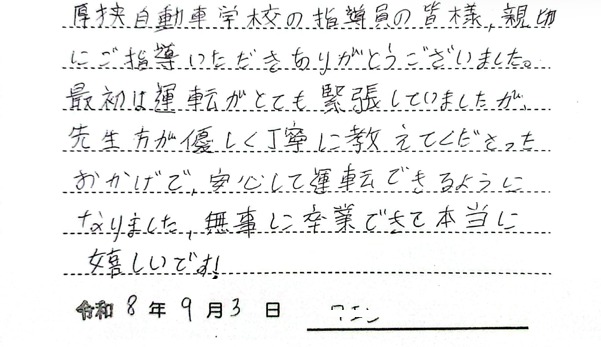 厚狭自動車学校の指導員の皆様、親切
にご指導いただきありがとうございました。
最初は運転がとても緊張していましたが、
先生方が優しく丁寧に教えてくださった
おかげで、安心して運転できるように
なりました。無事に卒業できて本当に
嬉しいです!
令和 8 年 9 月 3 日